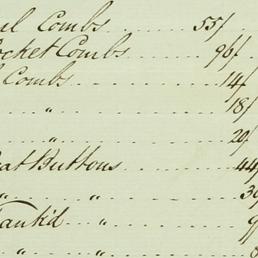 Combs 55/
ocket Combs 96/
Combs 14/
" 18/
" 20/
oat Buttons 44/
" "
Shank'd "
" "